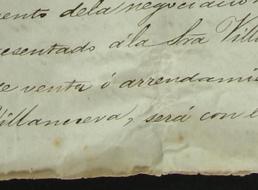 ento dela negociacion
resentado á la Sra Villa
e venta ó arrendamie
Villanueva, será con l